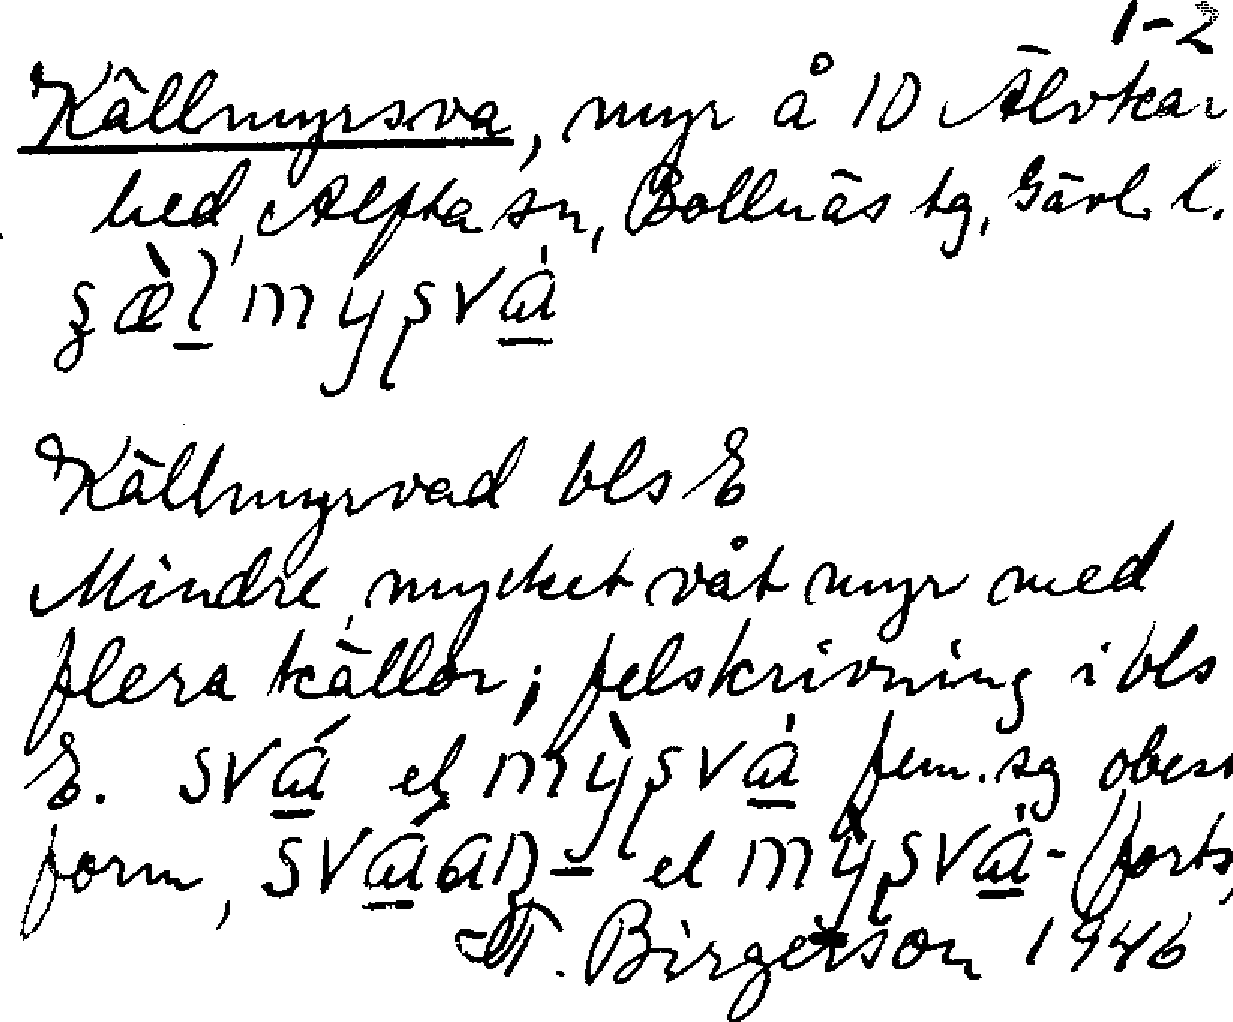 1-2
Källmyrsva, myr å 10 Älvkar
hed, Alfta sn, Bollnäs tg, Gävl. l.
Källmyrvad bls E
Mindre, mycket våt myr med
flera källor; felskrivning i bls
E. svá el mỳsvȧ fem. sg obest
form, el (forts,
T. Birgerson 1946